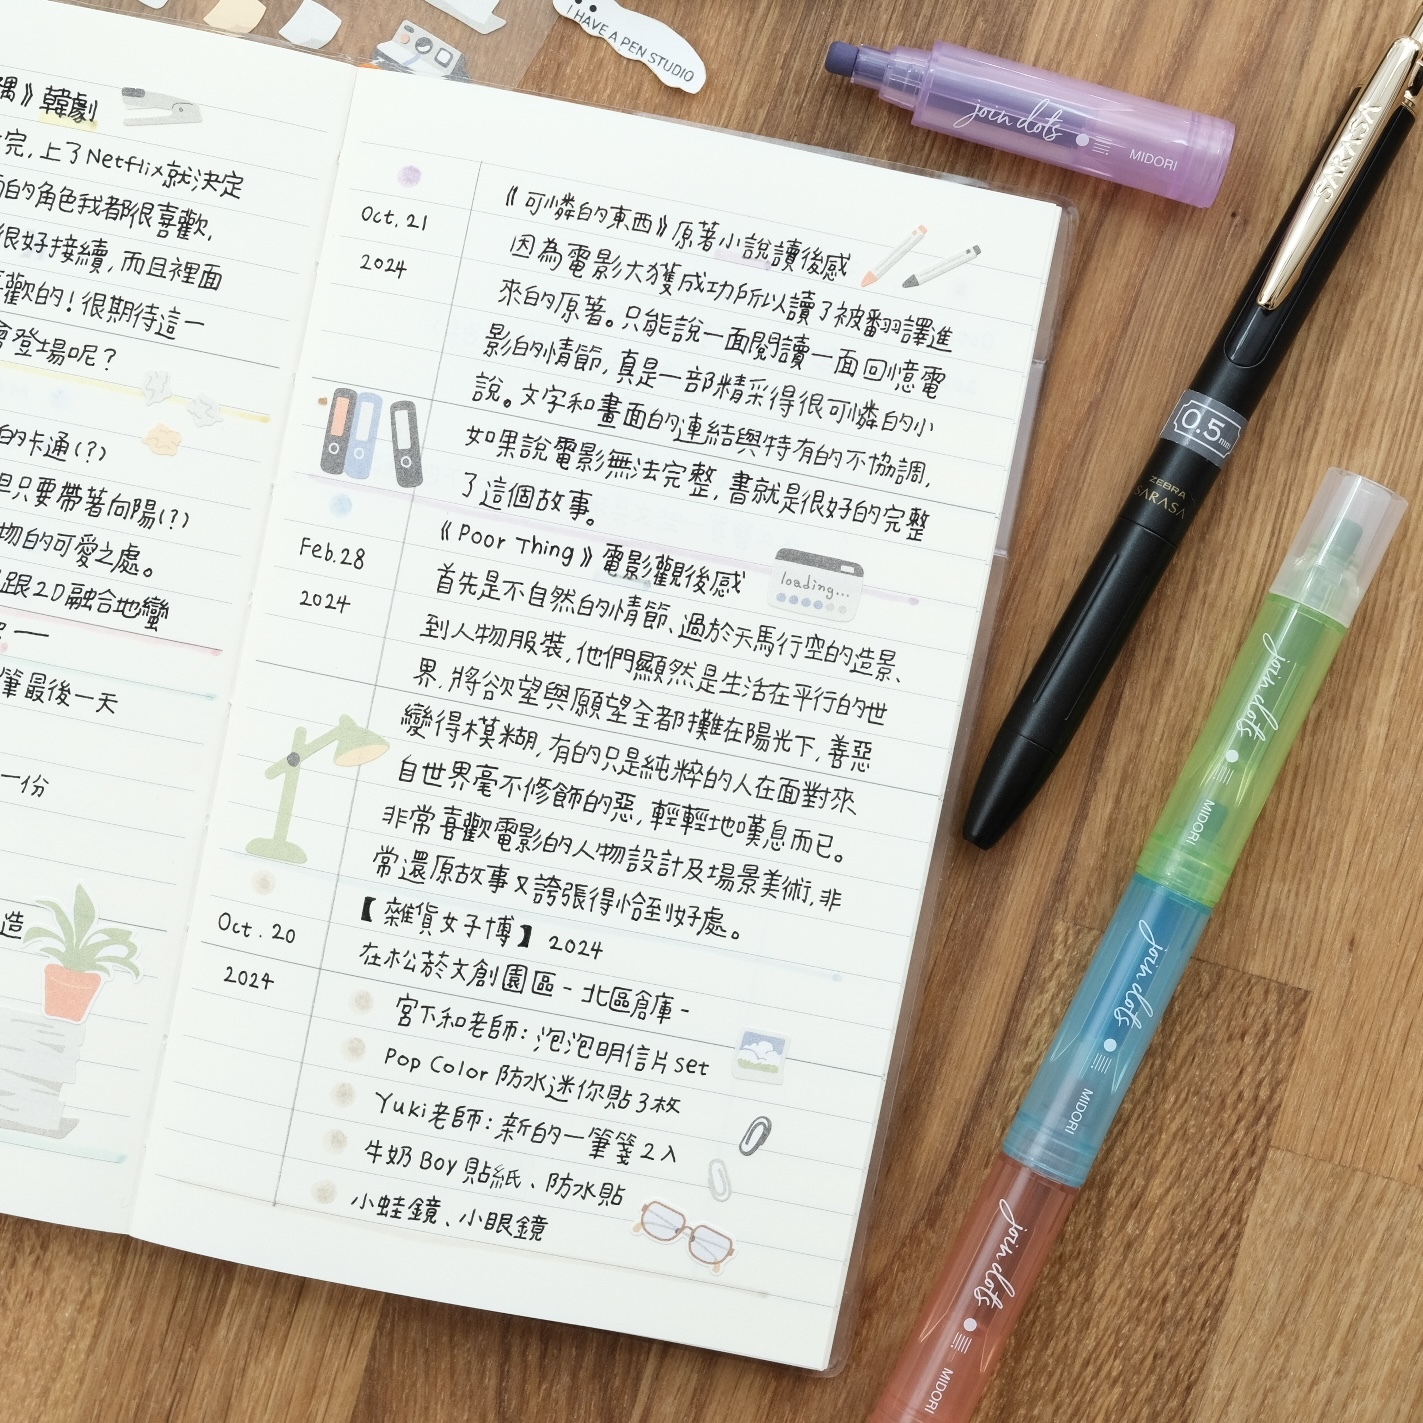 I HAVE A PEN STUDIO
》韓劇
完，上了Netflix就決定
的角色我都很喜歡，
很好接續，而且裡面
歡的！很期待這一
登場呢？
的卡通(?)
只要帶著向陽(?)
物的可愛之處。
跟2D融合地蠻
筆最後一天
一份
造
Oct. 21
2024
《可憐的東西》原著小說讀後感
因為電影大獲成功所以讀了被翻譯進
來的原著。只能說一面閱讀一面回憶電
影的情節，真是一部精采得很可憐的小
說。文字和畫面的連結與特有的不協調，
如果說電影無法完整，書就是很好的完整
了這個故事。
Feb. 28
2024
《Poor Thing》電影觀後感
loading...
首先是不自然的情節、過於天馬行空的造景、
到人物服裝，他們顯然是生活在平行的世
界，將欲望與願望全都攤在陽光下，善惡
變得模糊，有的只是純粹的人在面對來
自世界毫不修飾的惡，輕輕地嘆息而已。
非常喜歡電影的人物設計及場景美術，非
常還原故事又誇張得恰到好處。
Oct. 20
2024
【雜貨女子博】 2024
在松菸文創園區-北區倉庫-
宮下和老師：泡泡明信片set
Pop Color 防水迷你貼3枚
Yuki老師：新的一筆箋2入
牛奶Boy貼紙、防水貼
小蛙鏡、小眼鏡
join dots MIDORI
SARASA
0.5mm
ZEBRA
SARASA
join dots MIDORI
join dots MIDORI
join dots MIDORI